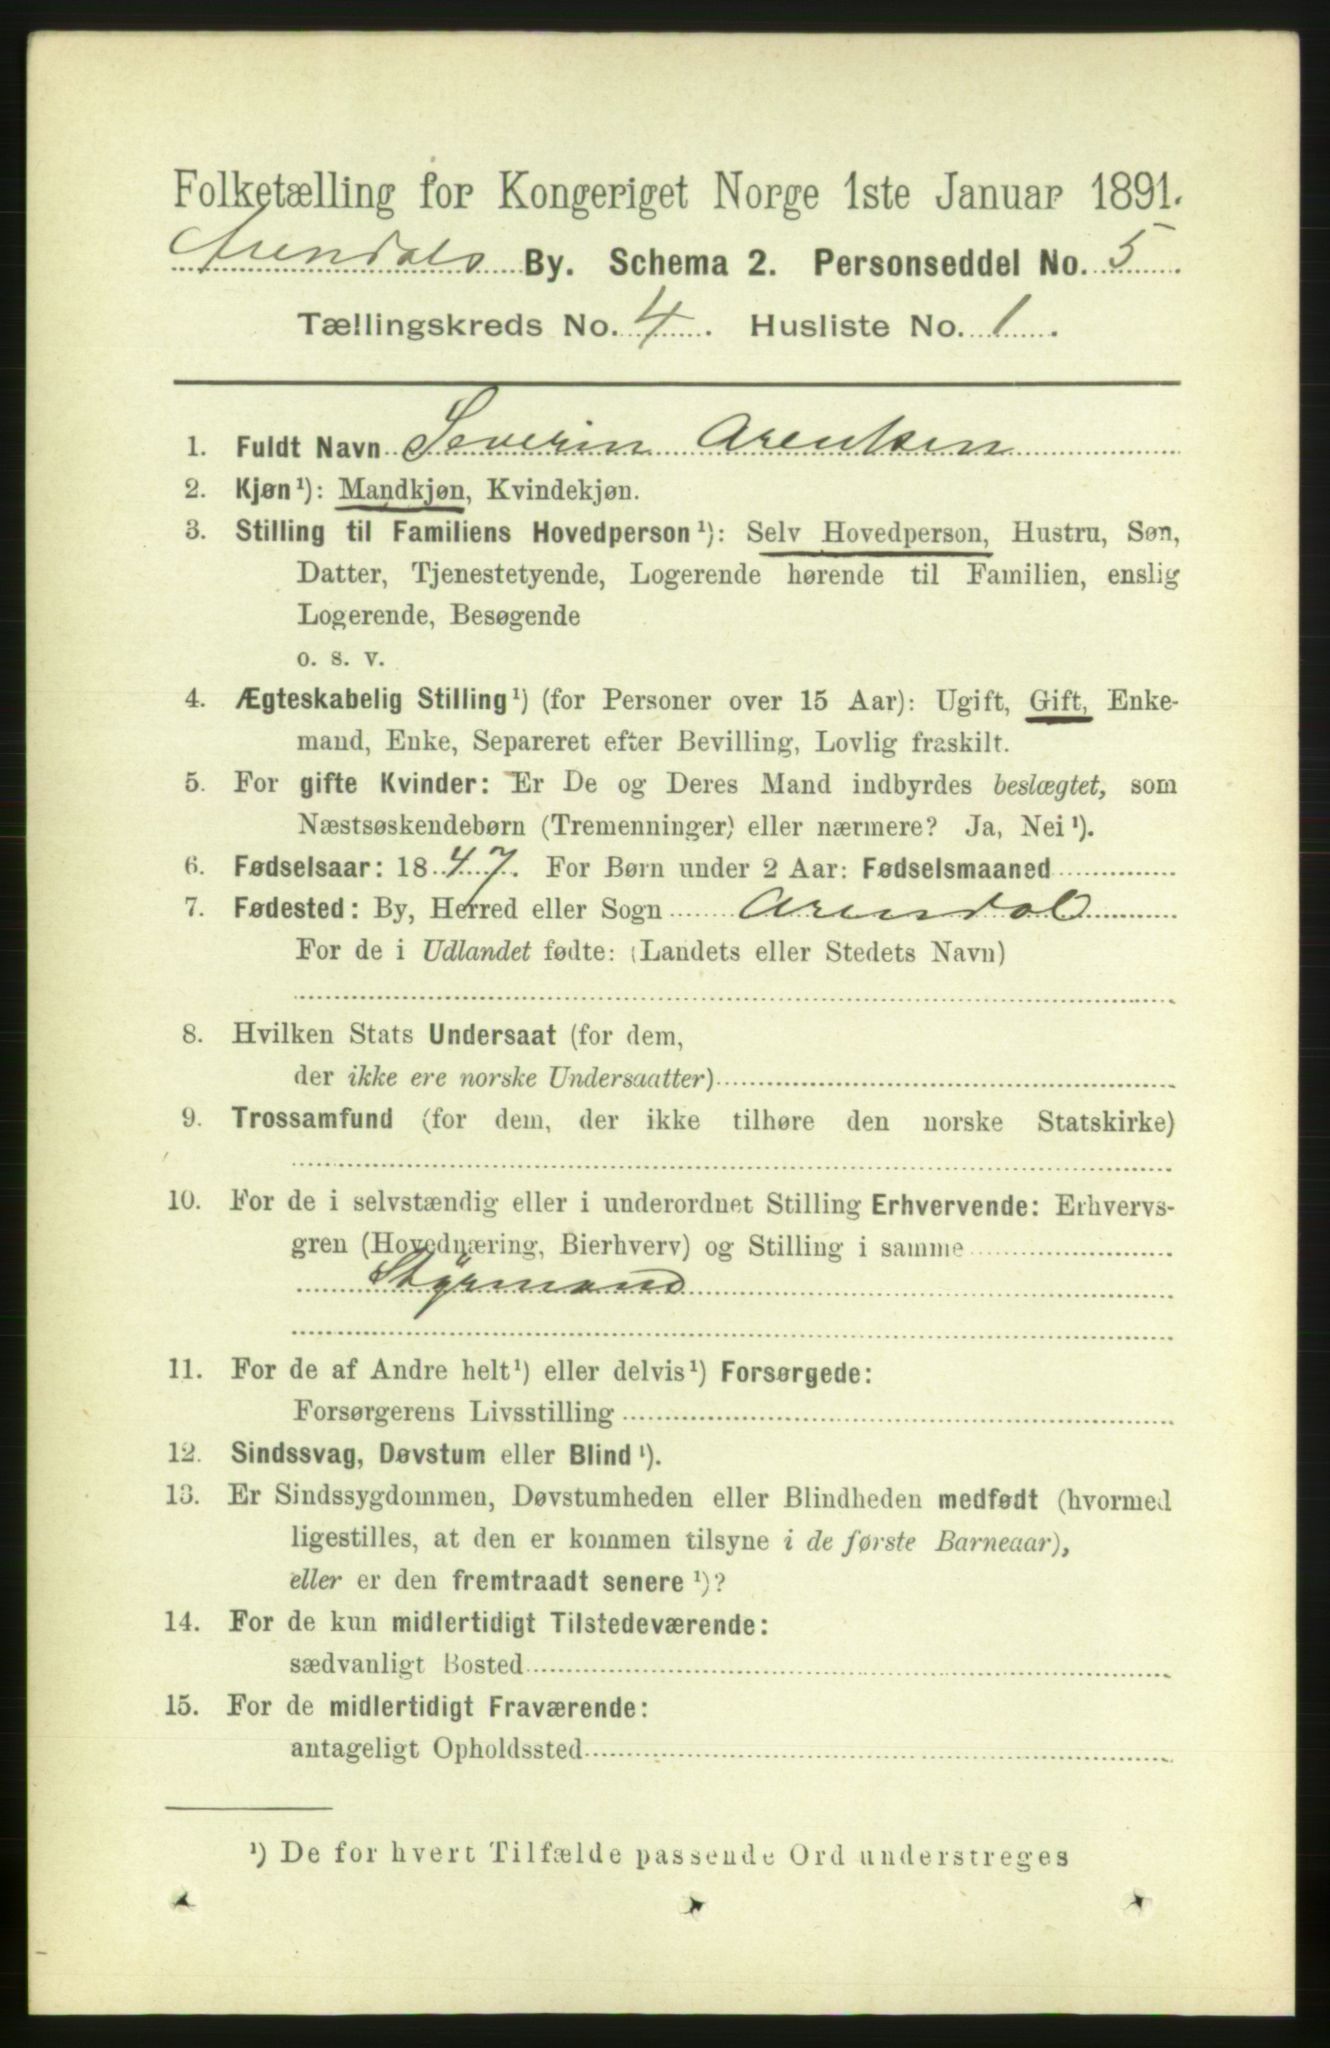 Folketælling for Kongeriget Norge 1ste Januar 1891.
Arendals By. Schema 2. Personseddel No. 5
Tællingskreds No. 4. Husliste No. 1.
1. Fuldt Navn Severin Arentsen
2. Kjøn¹): Mandkjøn, Kvindekjøn.
3. Stilling til Familiens Hovedperson¹): Selv Hovedperson, Hustru, Søn,
Datter, Tjenestetyende, Logerende hørende til Familien, enslig
Logerende, Besøgende
o. s. v.
4. Ægteskabelig Stilling¹) (for Personer over 15 Aar): Ugift, Gift, Enke-
mand, Enke, Separeret efter Bevilling, Lovlig fraskilt.
5. For gifte Kvinder: Er De og Deres Mand indbyrdes beslægtet, som
Næstsøskendebørn (Tremenninger) eller nærmere? Ja, Nei¹).
6. Fødselsaar: 1847. For Børn under 2 Aar: Fødselsmaaned
7. Fødested: By, Herred eller Sogn Arendal
For de i Udlandet fødte: (Landets eller Stedets Navn)
8. Hvilken Stats Undersaat (for dem,
der ikke ere norske Undersaatter)
9. Trossamfund (for dem, der ikke tilhøre den norske Statskirke)
10. For de i selvstændig eller i underordnet Stilling Erhvervende: Erhvervs-
gren (Hovednæring, Bierhverv) og Stilling i samme
Styrmand
11. For de af Andre helt¹) eller delvis¹) Forsørgede:
Forsørgerens Livsstilling
12. Sindssvag, Døvstum eller Blind¹).
13. Er Sindssygdommen, Døvstumheden eller Blindheden medfødt (hvormed
ligestilles, at den er kommen tilsyne i de første Barneaar),
eller er den fremtraadt senere¹)?
14. For de kun midlertidigt Tilstedeværende:
sædvanligt Bosted
15. For de midlertidigt Fraværende:
antageligt Opholdssted
¹) De for hvert Tilfælde passende Ord understreges